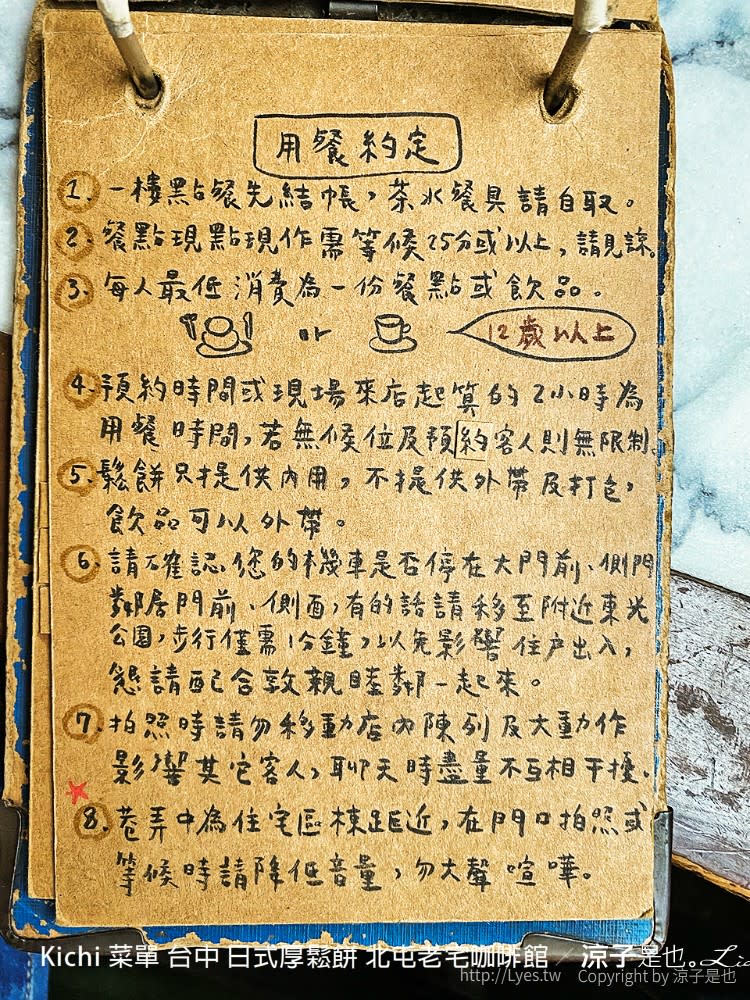 用餐約定
1. 一樓點餐先結帳，茶水餐具請自取。
2. 餐點現點現作需等候25分或以上，請見諒。
3. 每人最低消費為一份餐點或飲品。
or
12歲以上
4. 預約時間或現場來店起算的2小時為
用餐時間，若無候位及預約客人則無限制。
5. 鬆餅只提供內用，不提供外帶及打包，
飲品可以外帶。
6. 請確認您的機車是否停在大門前、側門
鄰居門前、側面，有的話請移至附近東光
公園，步行僅需1分鐘，以免影響住戶出入，
懇請配合敦親睦鄰一起來。
7. 拍照時請勿移動店內陳列及大動作
影響其它客人，聊天時盡量不互相干擾。
8. 巷弄中為住宅區棟距近，在門口拍照或
等候時請降低音量，勿大聲喧嘩。
Kichi 菜單 台中 日式厚鬆餅 北屯老宅咖啡館 / 涼子是也。
http://Lyes.tw Copyright by 涼子是也